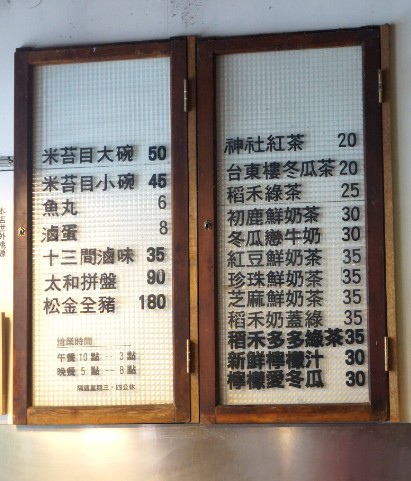 米苔目大碗 50
米苔目小碗 45
魚丸 6
滷蛋 8
十三間滷味 35
太和拼盤 90
松金全豬 180
營業時間
午餐10點--3點
晚餐5點--8點
隔週星期三、四公休
神社紅茶 20
台東樓冬瓜茶 20
稻禾綠茶 25
初鹿鮮奶茶 30
冬瓜戀牛奶 30
紅豆鮮奶茶 35
珍珠鮮奶茶 35
芝麻鮮奶茶 35
稻禾奶蓋綠 35
稻禾多多綠茶35
新鮮檸檬汁 30
檸檬愛冬瓜 30